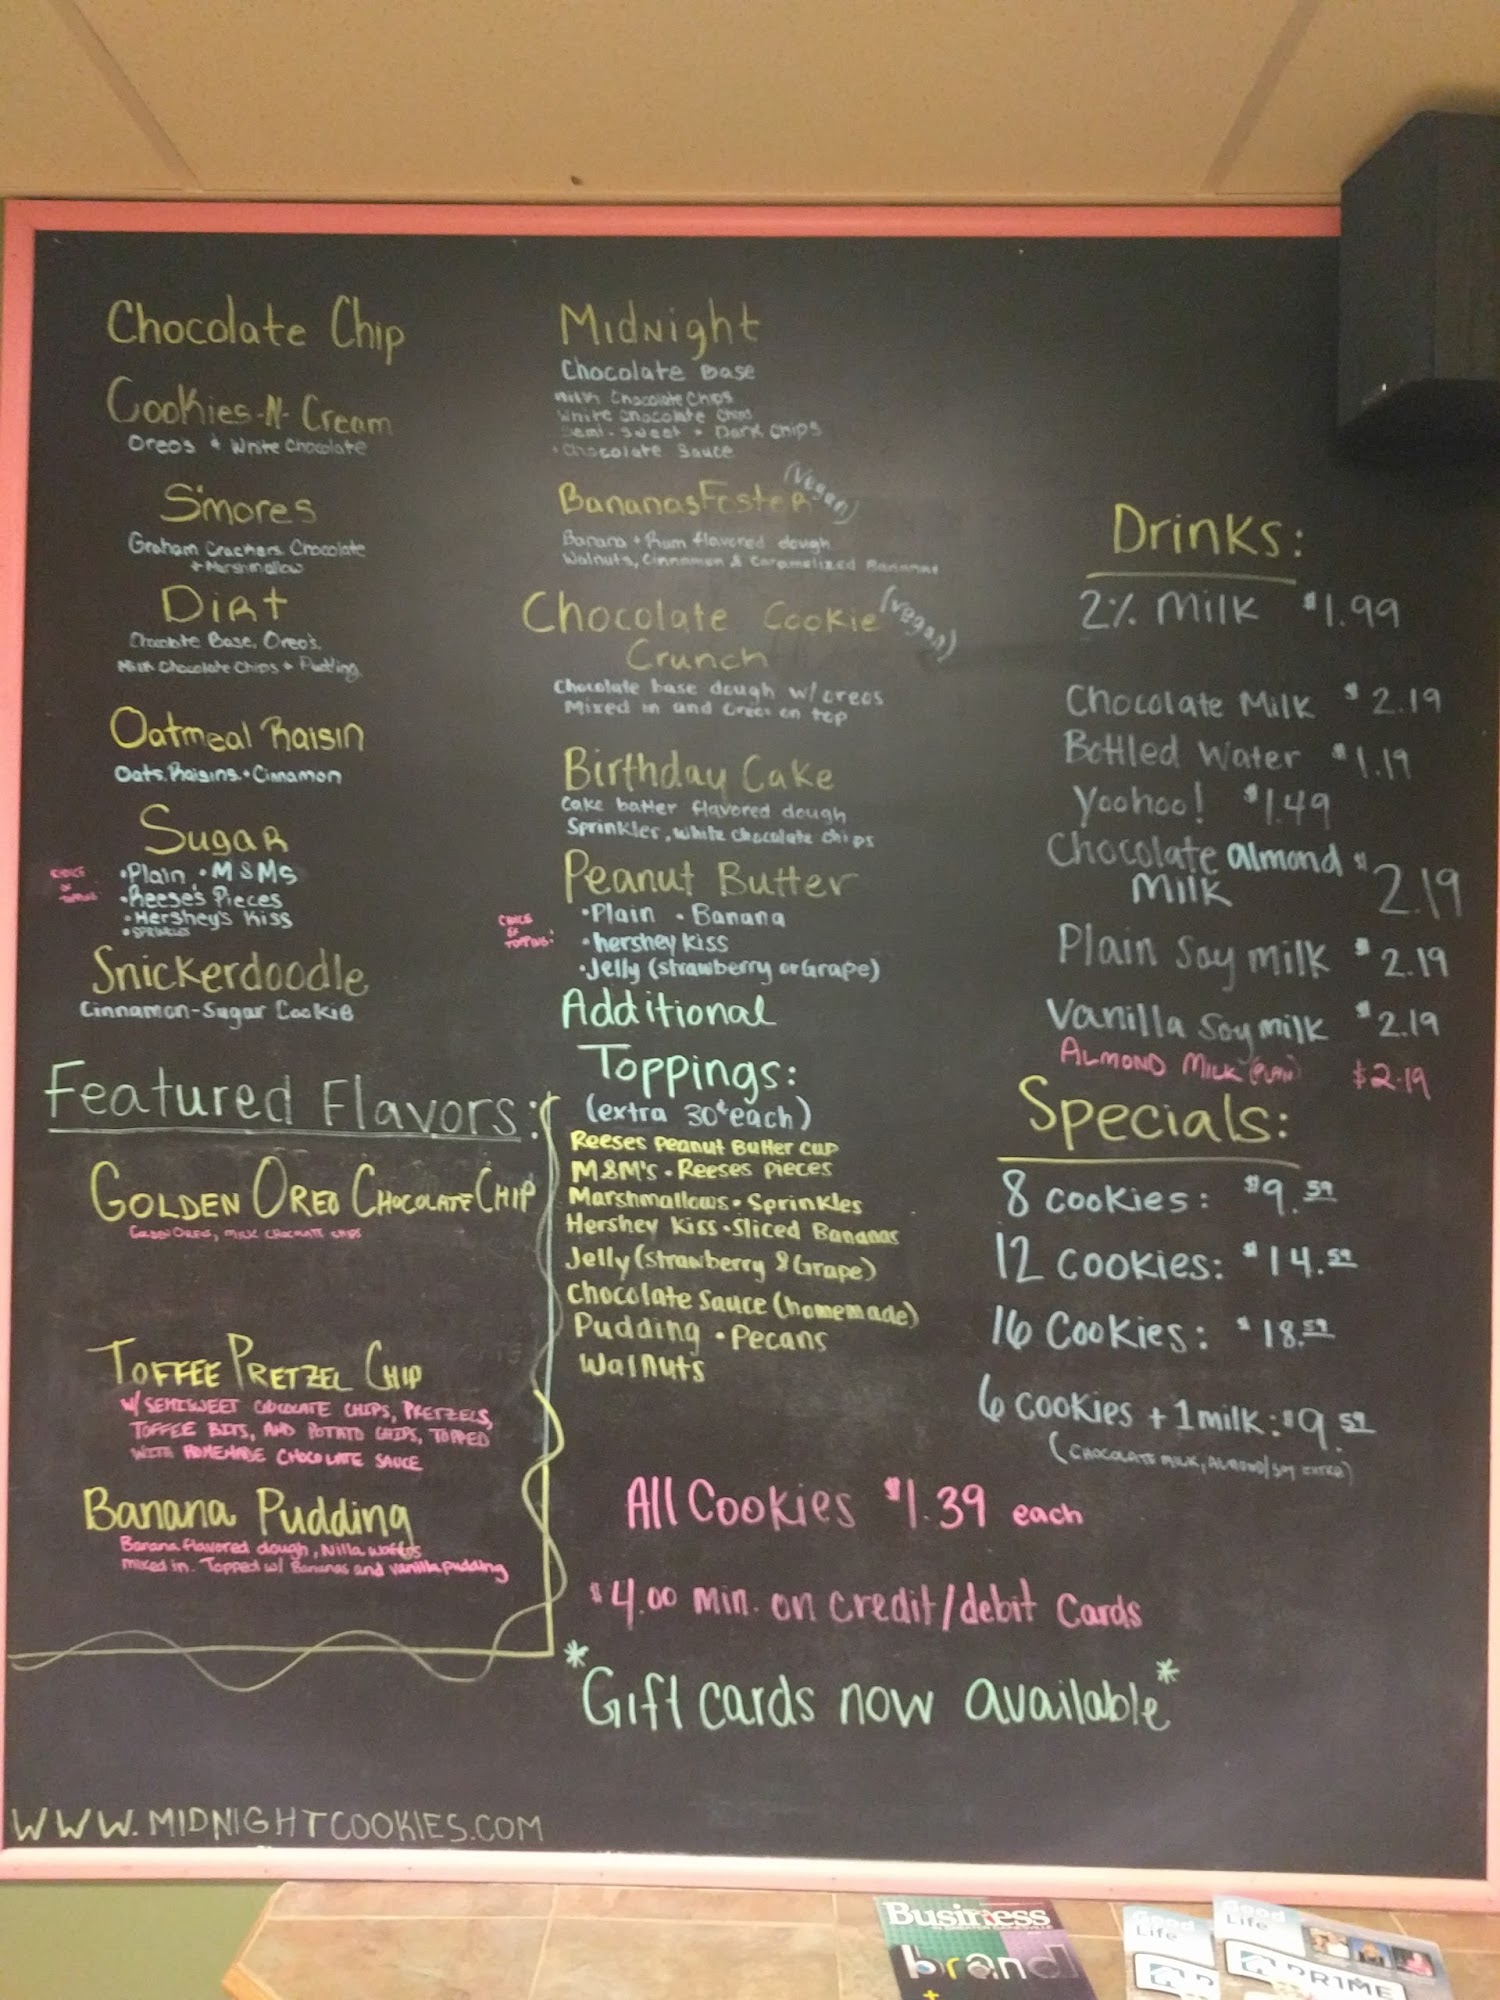 Chocolate Chip
Cookies-N-Cream
Oreo's + White Chocolate
S'mores
Graham Crackers, Chocolate
+ Marshmallow
Dirt
Chocolate Base, Oreo's,
Milk Chocolate Chips + Pudding
Oatmeal Raisin
Oats, Raisins + Cinnamon
Sugar
CHOICE
OF
TOPPING
•Plain •M&Ms
•Reese's Pieces
•Hershey's Kiss
•SPRINKLES
Snickerdoodle
Cinnamon-Sugar Cookie
Featured Flavors:
GOLDEN OREO CHOCOLATE CHIP
GOLDEN OREOS, MILK CHOCOLATE CHIPS
TOFFEE PRETZEL CHIP
W/ SEMISWEET CHOCOLATE CHIPS, PRETZELS,
TOFFEE BITS, AND POTATO CHIPS, TOPPED
WITH HOMEMADE CHOCOLATE SAUCE
Banana Pudding
Banana flavored dough, Nilla wafers
mixed in. Topped w/ Bananas and vanilla pudding
WWW.MIDNIGHTCOOKIES.COM
Midnight
Chocolate Base
Milk Chocolate Chips
White Chocolate Chips
Semi-Sweet + Dark Chips
+ Chocolate Sauce
Bananas Foster (vegan)
Banana + Rum flavored dough
Walnuts, Cinnamon & Caramelized Bananas
Chocolate Cookie (vegan)
Crunch
Chocolate base dough w/ oreos
Mixed in and oreos on top
Birthday Cake
Cake batter flavored dough
Sprinkles, white chocolate chips
Peanut Butter
CHOICE
OF
TOPPING:
•Plain •Banana
•hershey kiss
•Jelly (strawberry or Grape)
Additional
Toppings:
(extra 30¢ each)
Reeses Peanut Butter cup
M&M's • Reeses pieces
Marshmallows • Sprinkles
Hershey Kiss • Sliced Bananas
Jelly (strawberry & Grape)
Chocolate Sauce (homemade)
Pudding • Pecans
Walnuts
Drinks:
2% Milk $1.99
Chocolate Milk $2.19
Bottled Water $1.19
Yoohoo! $1.49
Chocolate almond $2.19
Milk
Plain Soy milk $2.19
Vanilla Soy milk $2.19
ALMOND MILK (PLAIN) $2.19
Specials:
8 cookies: $9.59
12 cookies: $14.59
16 Cookies: $18.59
6 cookies + 1 milk: $9.59
(CHOCOLATE MILK, ALMOND/SOY EXTRA)
All Cookies $1.39 each
$4.00 min. on credit/debit Cards
*Gift cards now available*
Business
brand
+
Good
Life
Good
Life
PR1ME